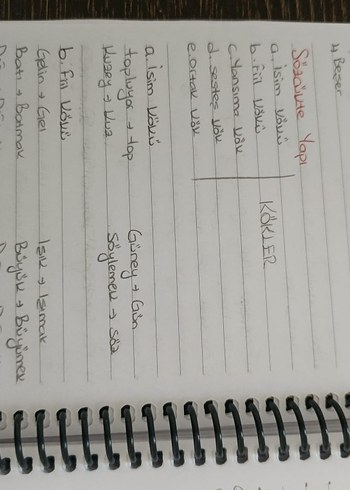 4) Beşer
Sözcükte Yapı
a. İsim kökü
b. Fiil kökü
c. Yansıma kök
d. sesteş kök
e. Ortak kök
KÖKLER
a. İsim kökü
topluyor → top Güney → Gün
kuzey → kuz Söylemek → söz
b. Fiil kökü
Gelin → Gel Işık → Işımak
Batı → Batmak Büyük → Büyümek